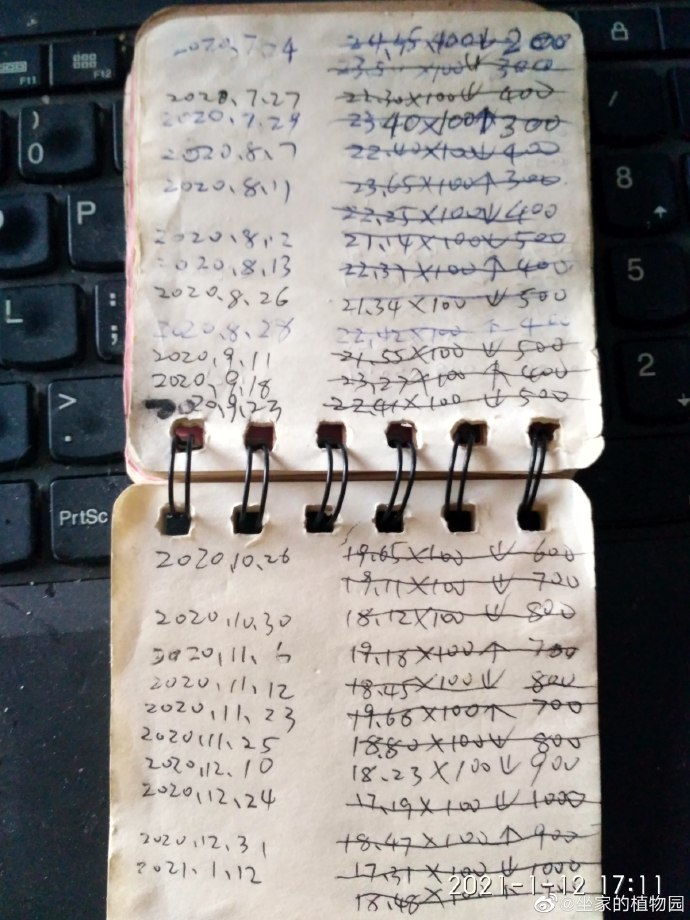 F11
F12
)
0
P
8
L
:
;
5
>
.
2
PrtSc
2020.7.24 24.45×100↓200
23.51×100↓300
2020.7.27 21.30×100↓400
2020.7.29 23.40×100↑300
2020.8.7 22.40×100↓400
2020.8.11 23.65×100↑300
22.25×100↓400
2020.8.12 21.14×100↓500
2020.8.13 22.37×100↑400
2020.8.26 21.34×100↓500
2020.8.28 22.42×100↑400
2020.9.11 21.55×100↓500
2020.9.18 23.27×100↑400
2020.9.23 22.41×100↓500
2020.10.26 19.65×100↓600
19.11×100↓700
2020.10.30 18.12×100↓800
2020.11.6 19.18×100↑700
2020.11.12 18.45×100↓800
2020.11.23 19.66×100↑700
2020.11.25 18.80×100↓800
2020.12.10 18.23×100↓900
2020.12.24 17.19×100↓1000
2020.12.31 18.47×100↑900
2021.1.12 17.31×100↓1000
18.48×100↑
2021-1-12 17:11
@坐家的植物园